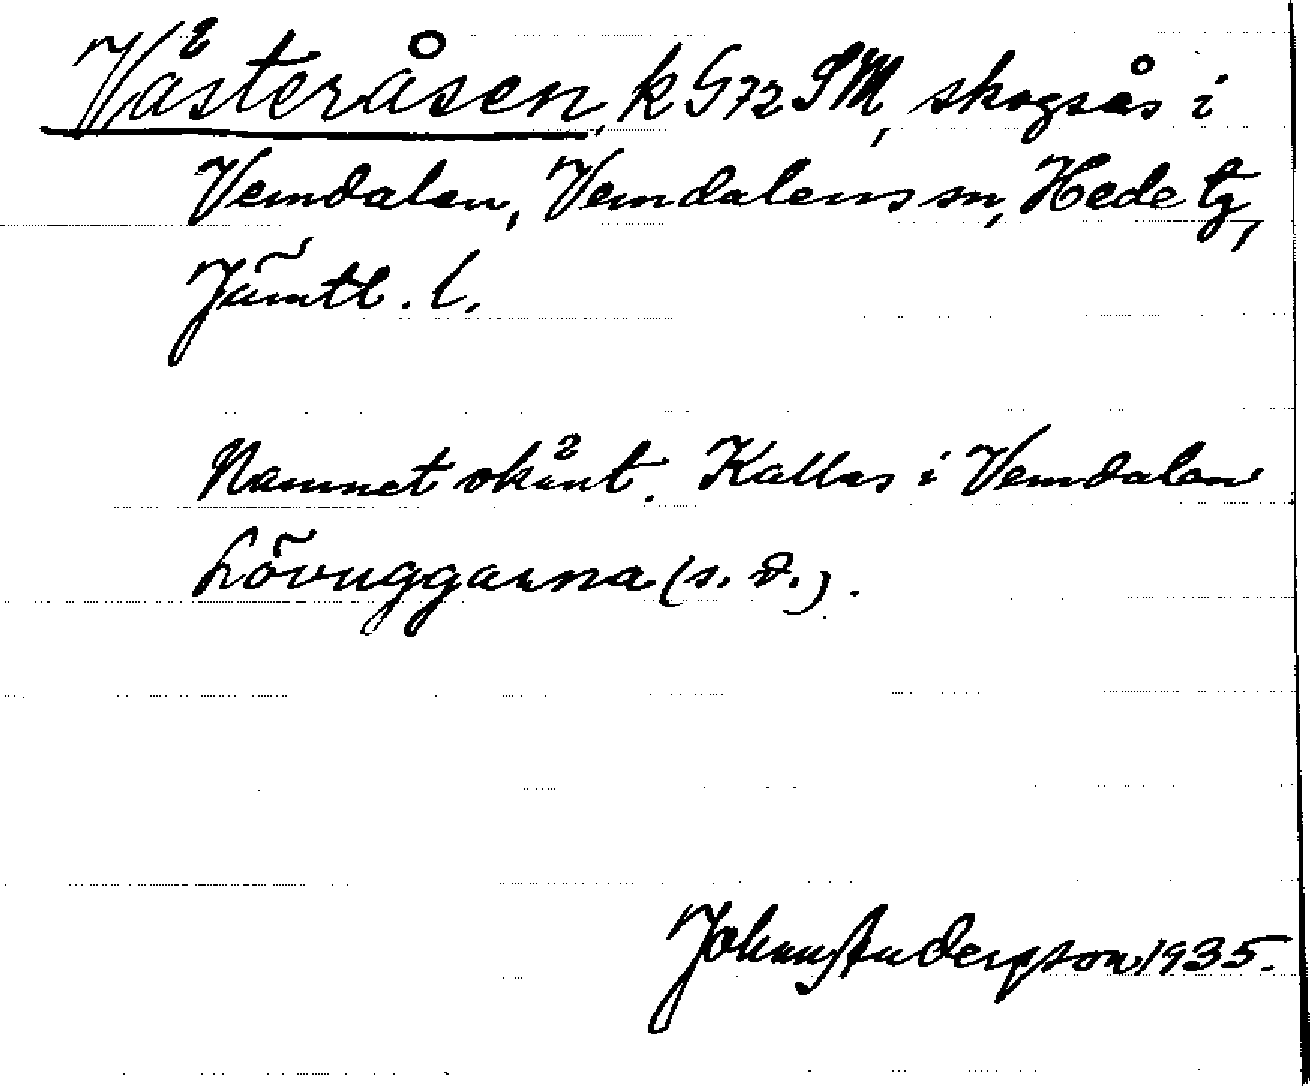 Västeråsen, k G72 SM, skogsås i
Vemdalen, Vemdalens sn, Hede tg,
Jämtl. l.
Namnet okänt. Kallas i Vemdalen
Lövuggarna (s. d.).
Johan Andersson 1935.